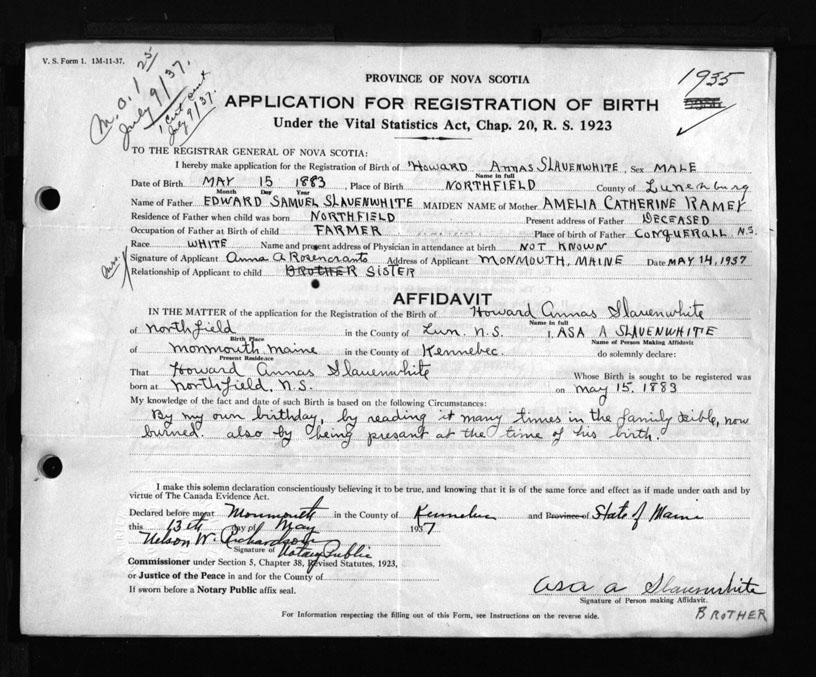 V. S. Form 1. 1M-11-37.
M.O. 1 25
July 9/37.
1 Cert sent
July 9/37.
1935
PROVINCE OF NOVA SCOTIA
APPLICATION FOR REGISTRATION OF BIRTH
Under the Vital Statistics Act, Chap. 20, R. S. 1923
TO THE REGISTRAR GENERAL OF NOVA SCOTIA:
I hereby make application for the Registration of Birth of HOWARD ANNAS SLAUENWHITE, Sex MALE
Name in full
Date of Birth MAY 15 1883, Place of Birth NORTHFIELD County of Lunenburg
Month Day Year
Name of Father EDWARD SAMUEL SLAUENWHITE MAIDEN NAME of Mother AMELIA CATHERINE RAMEY
Residence of Father when child was born NORTHFIELD Present address of Father DECEASED
Occupation of Father at Birth of child FARMER Place of birth of Father CONQUERALL N.S.
Race WHITE Name and present address of Physician in attendance at birth NOT KNOWN
Signature of Applicant Anna A Rosencrants Address of Applicant MONMOUTH, MAINE Date MAY 14, 1937
Relationship of Applicant to child BROTHER SISTER
AFFIDAVIT
IN THE MATTER of the application for the Registration of the Birth of Howard Annas Slauenwhite
Name in full
of Northfield in the County of Lun. N.S. I, ASA A SLAUENWHITE
Birth Place Name of Person Making Affidavit
of Monmouth, Maine in the County of Kennebec. do solemnly declare:
Present Residence
That Howard Annas Slauenwhite Whose Birth is sought to be registered was
born at Northfield, N.S. on May 15. 1883
My knowledge of the fact and date of such Birth is based on the following Circumstances:
By my own birthday, by reading it many times in the family Bible, now
burned. also by being presant at the time of his birth.
I make this solemn declaration conscientiously believing it to be true, and knowing that it is of the same force and effect as if made under oath and by
virtue of The Canada Evidence Act.
Declared before me at Monmouth in the County of Kennebec and Province of State of Maine
this 13th day of May 1937
Nelson W. Richardson
Signature of Notary Public
Commissioner under Section 5, Chapter 38, Revised Statutes, 1923,
or Justice of the Peace in and for the County of
If sworn before a Notary Public affix seal.
Asa A Slauenwhite
Signature of Person making Affidavit.
BROTHER
For Information respecting the filling out of this Form, see Instructions on the reverse side.